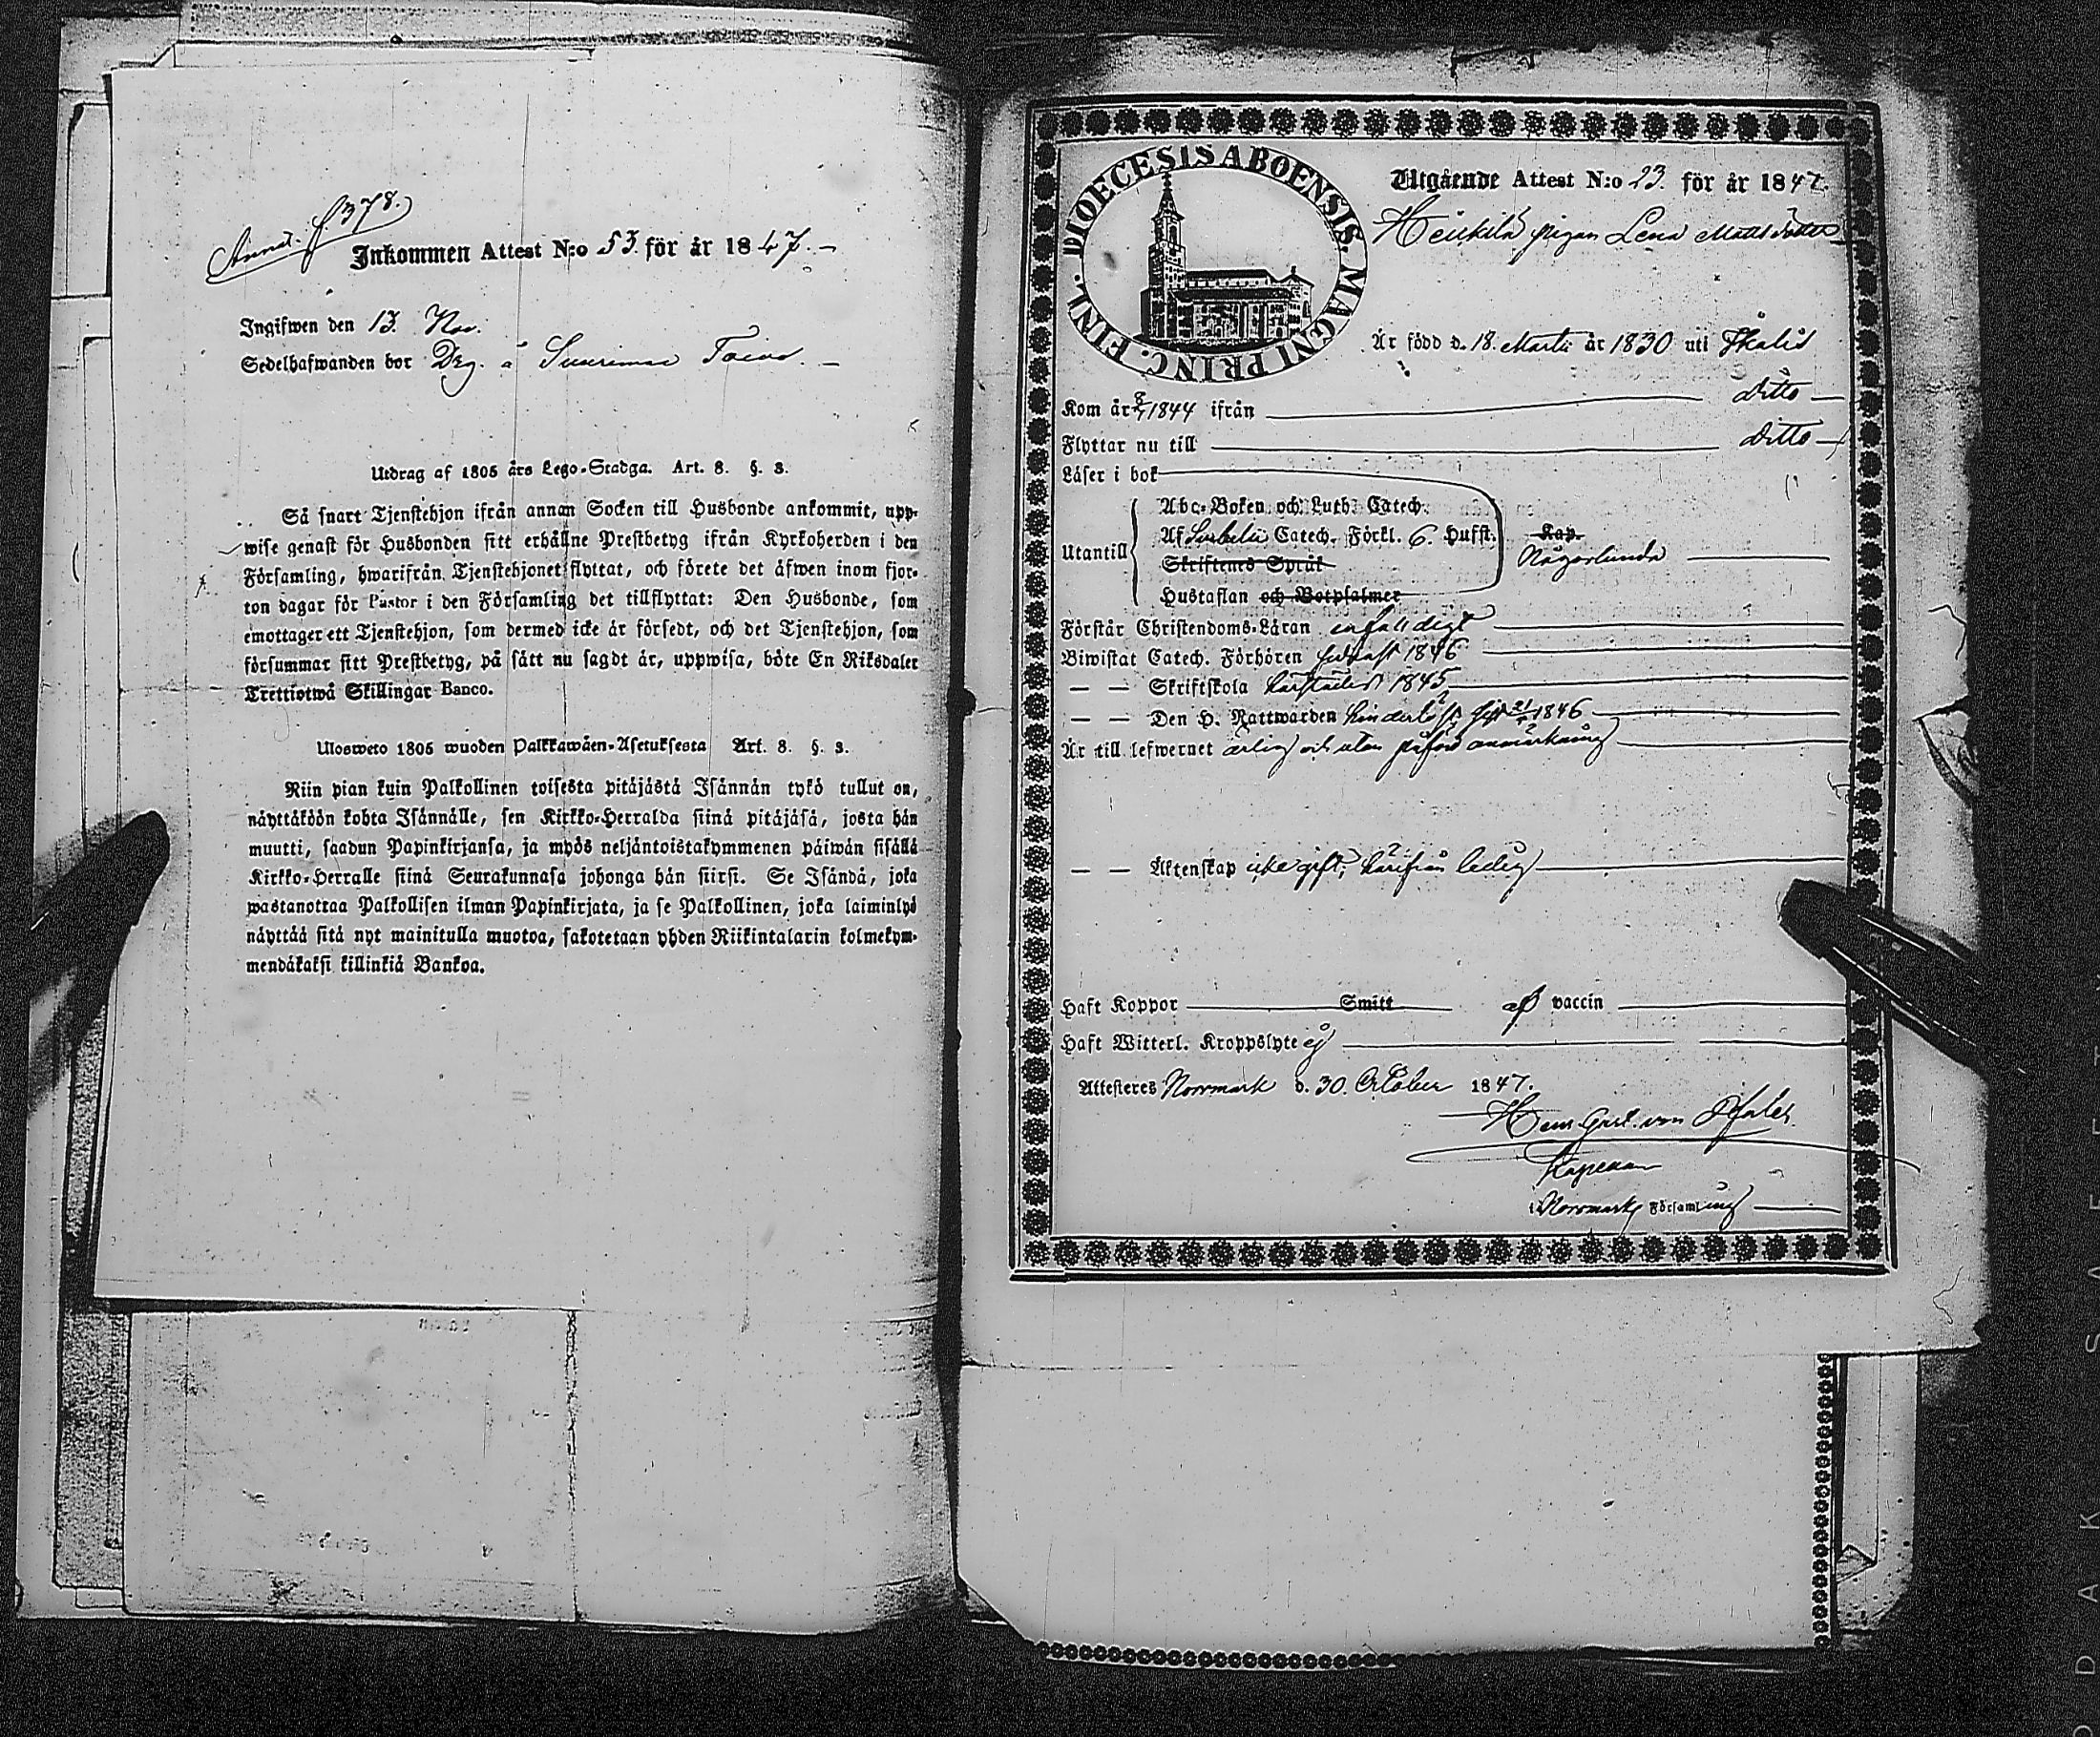 Annot. f. 378.
Inkommen Attest N:o 53. för år 1847.
Ingifwen den 13. Nov.
Sedelhafwanden bor Drg. å Suurimaa Toivo.
Utdrag af 1805 års Lego-Stadga. Art. 8. §. 3.
Så snart Tjenstehjon ifrån annan Socken till Husbonde ankommit, upp-
wise genast för Husbonden sitt erhållne Prestbetyg ifrån Kyrkoherden i den
Församling, hwarifrån Tjenstehjonet flyttat, och förete det äfwen inom fjor-
ton dagar för Pastor i den Församling det tillflyttat: Den Husbonde, som
emottager ett Tjenstehjon, som dermed icke är försedt, och det Tjenstehjon, som
försummar sitt Prestbetyg, på sätt nu sagdt är, uppwisa, böte En Riksdaler
Trettiotwå Skillingar Banco.
Ulosweto 1805 wuoden Palkkawäen-Asetuksesta Art. 8. §. 3.
Niin pian kuin Palkollinen toisesta pitäjästä Isännän tykö tullut on,
näyttäköön kohta Isännälle, sen Kirkko-Herralda siinä pitäjäsä, josta hän
muutti, saadun Papinkirjansa, ja myös neljäntoistakymmenen päiwän sisällä
Kirkko-Herralle siinä Seurakunnasa johonga hän siirsi. Se Isändä, joka
wastanottaa Palkollisen ilman Papinkirjata, ja se Palkollinen, joka laiminlyö
näyttää sitä nyt mainitulla muotoa, sakotetaan yhden Riikintalarin kolmekym-
mendäkaksi killinkiä Bankoa.
DIOECESIS ABOENSIS. MAGNI PRINC. FINL.
Utgående Attest N:o 23. för år 1847.
Heikkilä pigan Lena Mattsdotter
Är född d. 18. Martii år 1830 uti Ikalis
Kom år 1844 ifrån ditto
Flyttar nu till ditto
Läser i bok
Abc-Boken och Luth. Catech.
Af Svebelii Catech. Förkl. 6. Hufst. Kap.
Utantill Någorlunda
Skriftenes Språk
Hustaflan och Botpsalmer
Förstår Christendoms-Läran enfalldigt
Biwistat Catech. Förhören sednast 1846
— — Skriftskola härstädes 1845
— — Den H. Nattwarden hinderlöst sist 1846
Är till lefwernet ärlig och utan påförd anmärkning
— — Äktenskap icke gift, härifrån ledig
Haft Koppor Smitt af vaccin
Haft Witterl. Kroppslyte ej
Attesteres Norrmark d. 30. October 1847.
Herm. Gust. von Pfaler.
Kapellan
i Norrmark Församling